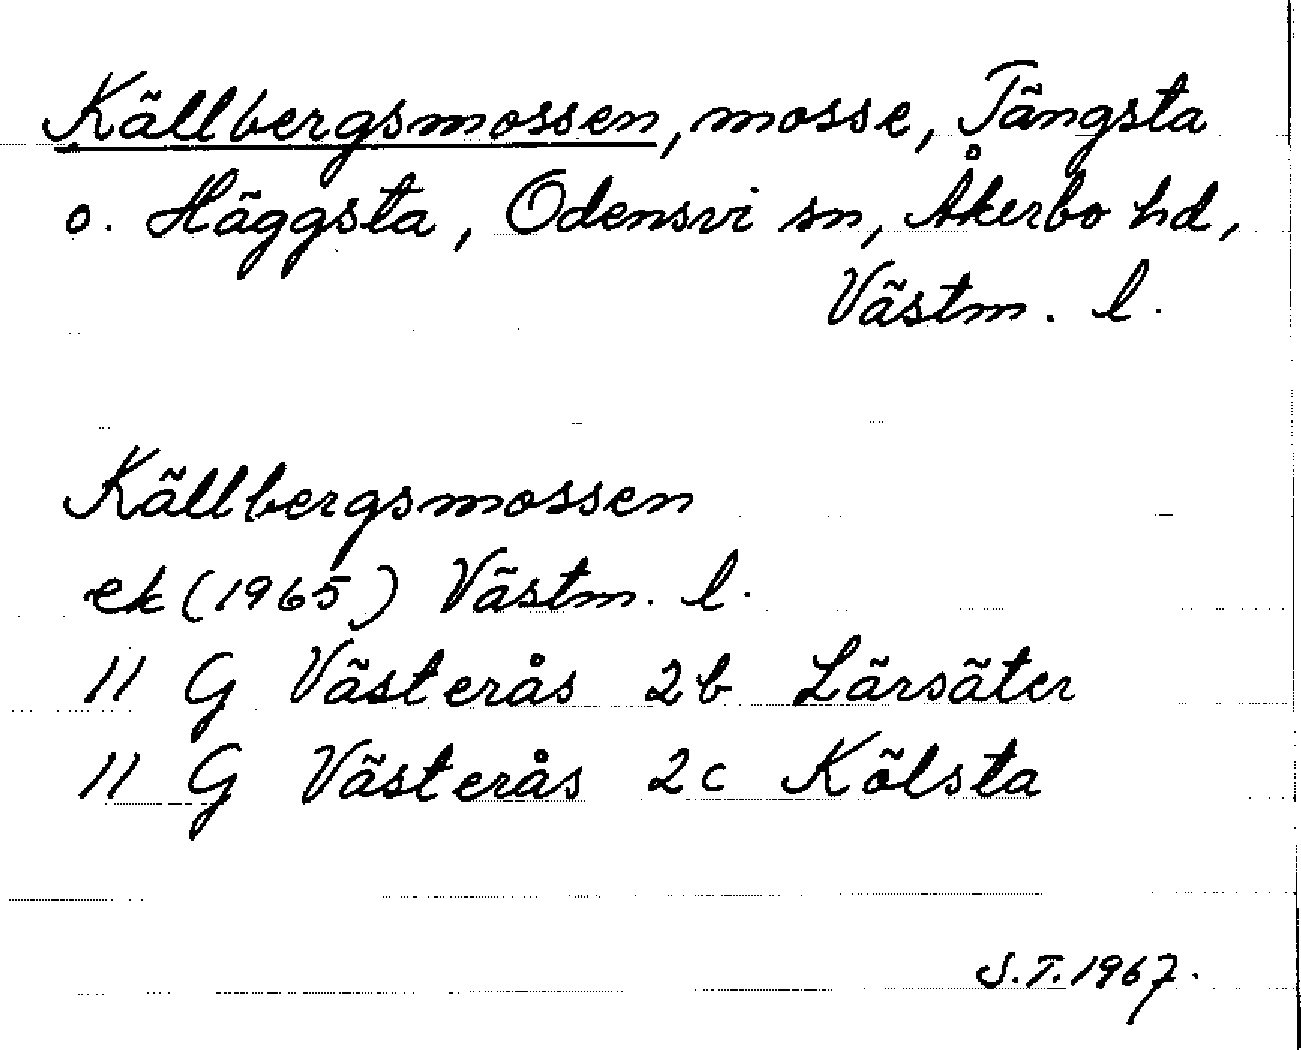 Källbergsmossen, mosse, Tängsta
o. Häggsta, Odensvi sn, Åkerbo hd,
Västm. l.
Källbergsmossen
ek (1965) Västm. l.
11 G Västerås 2b Lärsäter
11 G Västerås 2c Kölsta
S.T. 1967.